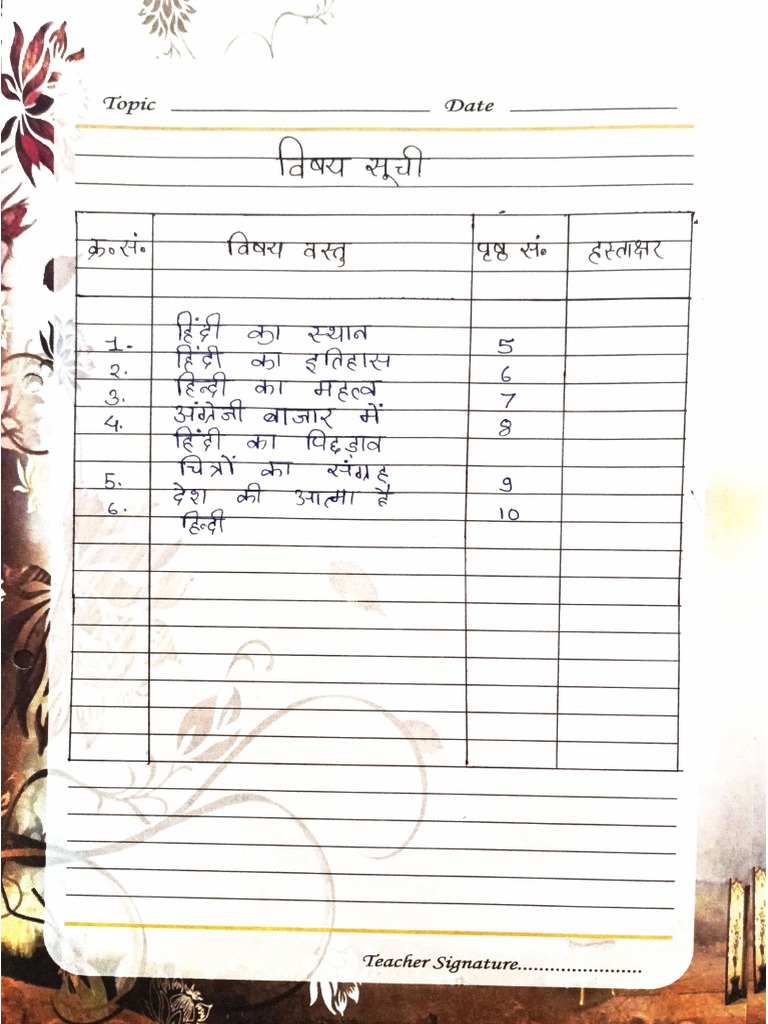 Topic Date
विषय सूची
क्र.सं. विषय वस्तु पृष्ठ सं. हस्ताक्षर
1. हिंदी का स्थान 5
2. हिंदी का इतिहास 6
3. हिन्दी का महत्व 7
4. अंग्रेजी बाजार में 8
हिंदी का पिछड़ाव
5. चित्रों का संग्रह 9
6. देश की आत्मा है 10
हिन्दी
Teacher Signature........................